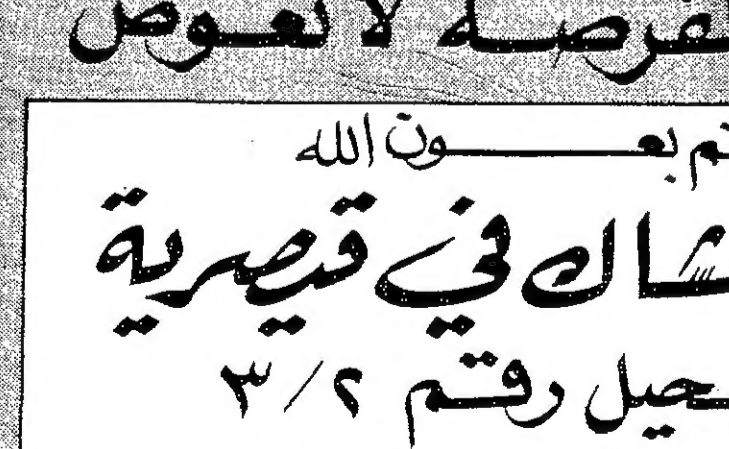 لفرصة لا تعوض
تم بعون الله
شاك في قيصرية
حيل رقم ٣/٢